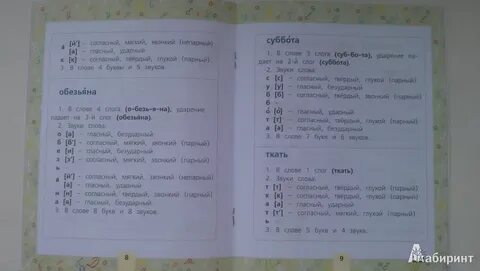 я [й'] – согласный, мягкий, звонкий (непарный)
[а] – гласный, ударный
к [к] – согласный, твёрдый, глухой (парный)
3. В слове 4 буквы и 5 звуков.
обезья́на
1. В слове 4 слога (о-безь-я-на), ударение
падает на 3-й слог (обезья́на).
2. Звуки слова:
о [а] – гласный, безударный
б [б'] – согласный, мягкий, звонкий (парный)
е [и] – гласный, безударный
з [з'] – согласный, мягкий, звонкий (парный)
ь –
я [й'] – согласный, мягкий, звонкий (непарный)
[а] – гласный, ударный
н [н] – согласный, твёрдый, звонкий (непарный)
а [а] – гласный, безударный
3. В слове 8 букв и 8 звуков.
8
суббо́та
1. В слове 3 слога (суб-бо-та), ударение па-
дает на 2-й слог (суббо́та).
2. Звуки слова:
с [с] – согласный, твёрдый, глухой (парный)
у [у] – гласный, безударный
б [б] – согласный, твёрдый, звонкий (парный)
б –
о [о] – гласный, ударный
т [т] – согласный, твёрдый, глухой (парный)
а [а] – гласный, безударный
3. В слове 7 букв и 6 звуков.
ткать
1. В слове 1 слог (ткать)
2. Звуки слова:
т [т] – согласный, твёрдый, глухой (парный)
к [к] – согласный, твёрдый, глухой (парный)
а [а] – гласный, ударный
т [т'] – согласный, мягкий, глухой (парный)
ь –
3. В слове 5 букв и 4 звука.
9
Лабиринт